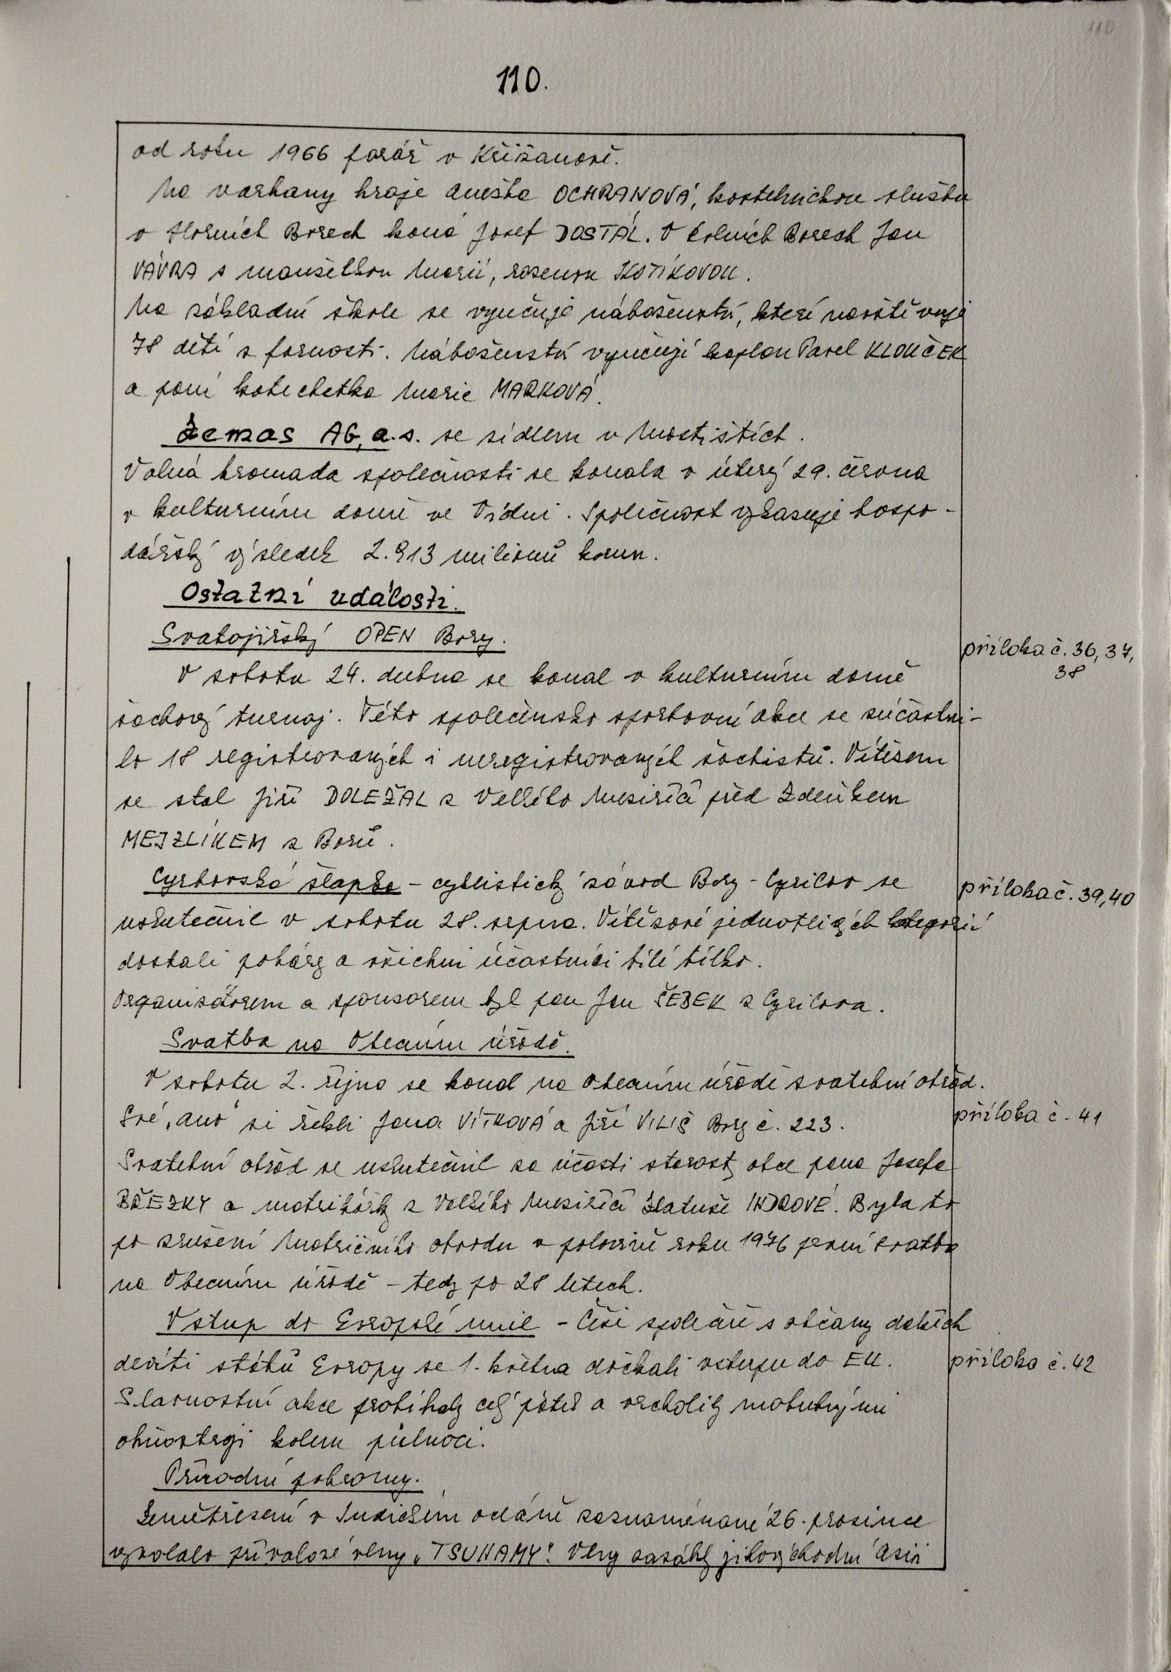 110.
od roku 1966 farář v Křižanově.
Na varhany hraje Anežka OCHRANOVÁ, kostelnickou službu
v Horních Borech koná Josef DOSTÁL. V Dolních Borech Jan
VÁVRA s manželkou Marií, rozenou KOTÍKOVOU.
Na základní škole se vyučuje náboženství, které navštěvuje
78 dětí z farnosti. Náboženství vyučují kaplan Pavel KLOUČEK
a paní katechetka Marie MARKOVÁ.
Zemas AG, a.s. se sídlem v Martinicích.
Valná hromada společnosti se konala v úterý 29. června
v kulturním domě ve Vídni. Společnost vykazuje hospo-
dářský výsledek 2.913 milionů korun.
Ostatní události.
Svatojiřský OPEN Bory.
příloha č. 36, 37,
38
V sobotu 24. dubna se konal v kulturním domě
šachový turnaj. Této společensko sportovní akce se zúčastni-
lo 18 registrovaných i neregistrovaných šachistů. Vítězem
se stal Jiří DOLEŽAL z Velkého Meziříčí před Zdeňkem
MEJZLÍKEM z Borů.
Cyrhovská šlapka - cyklistický závod Bory - Cyrilov se
příloha č. 39, 40
uskutečnil v sobotu 28. srpna. Vítězové jednotlivých kategorií
dostali poháry a všichni účastníci bílé tílko.
Organizátorem a sponzorem byl pan Jan ŠEBEK z Cyrilova.
Svatba na Obecním úřadě.
V sobotu 2. října se konal na Obecním úřadě svatební obřad.
Své „ano“ si řekli Jana VÍTKOVÁ a Jiří VILIŠ Bory č. 223.
příloha č. 41
Svatební obřad se uskutečnil za účasti starosty obce pana Josefa
BŘEZKY a matrikářky z Velkého Meziříčí Zlatuše INDROVÉ. Byla to
po zrušení Matričního obvodu v polovině roku 1976 první svatba
na Obecním úřadě - tedy po 28 letech.
Vstup do Evropské unie - Češi společně s občany dalších
devíti států Evropy se 1. května dočkali vstupu do EU.
příloha č. 42
Slavnostní akce probíhaly celý pátek a vrcholily mohutnými
ohňostroji kolem půlnoci.
Přírodní pohromy.
Zemětřesení v Indickém oceáně zaznamenané 26. prosince
vyvolalo přívalové vlny „TSUNAMY“. Vlny zasáhly jihovýchodní Asii